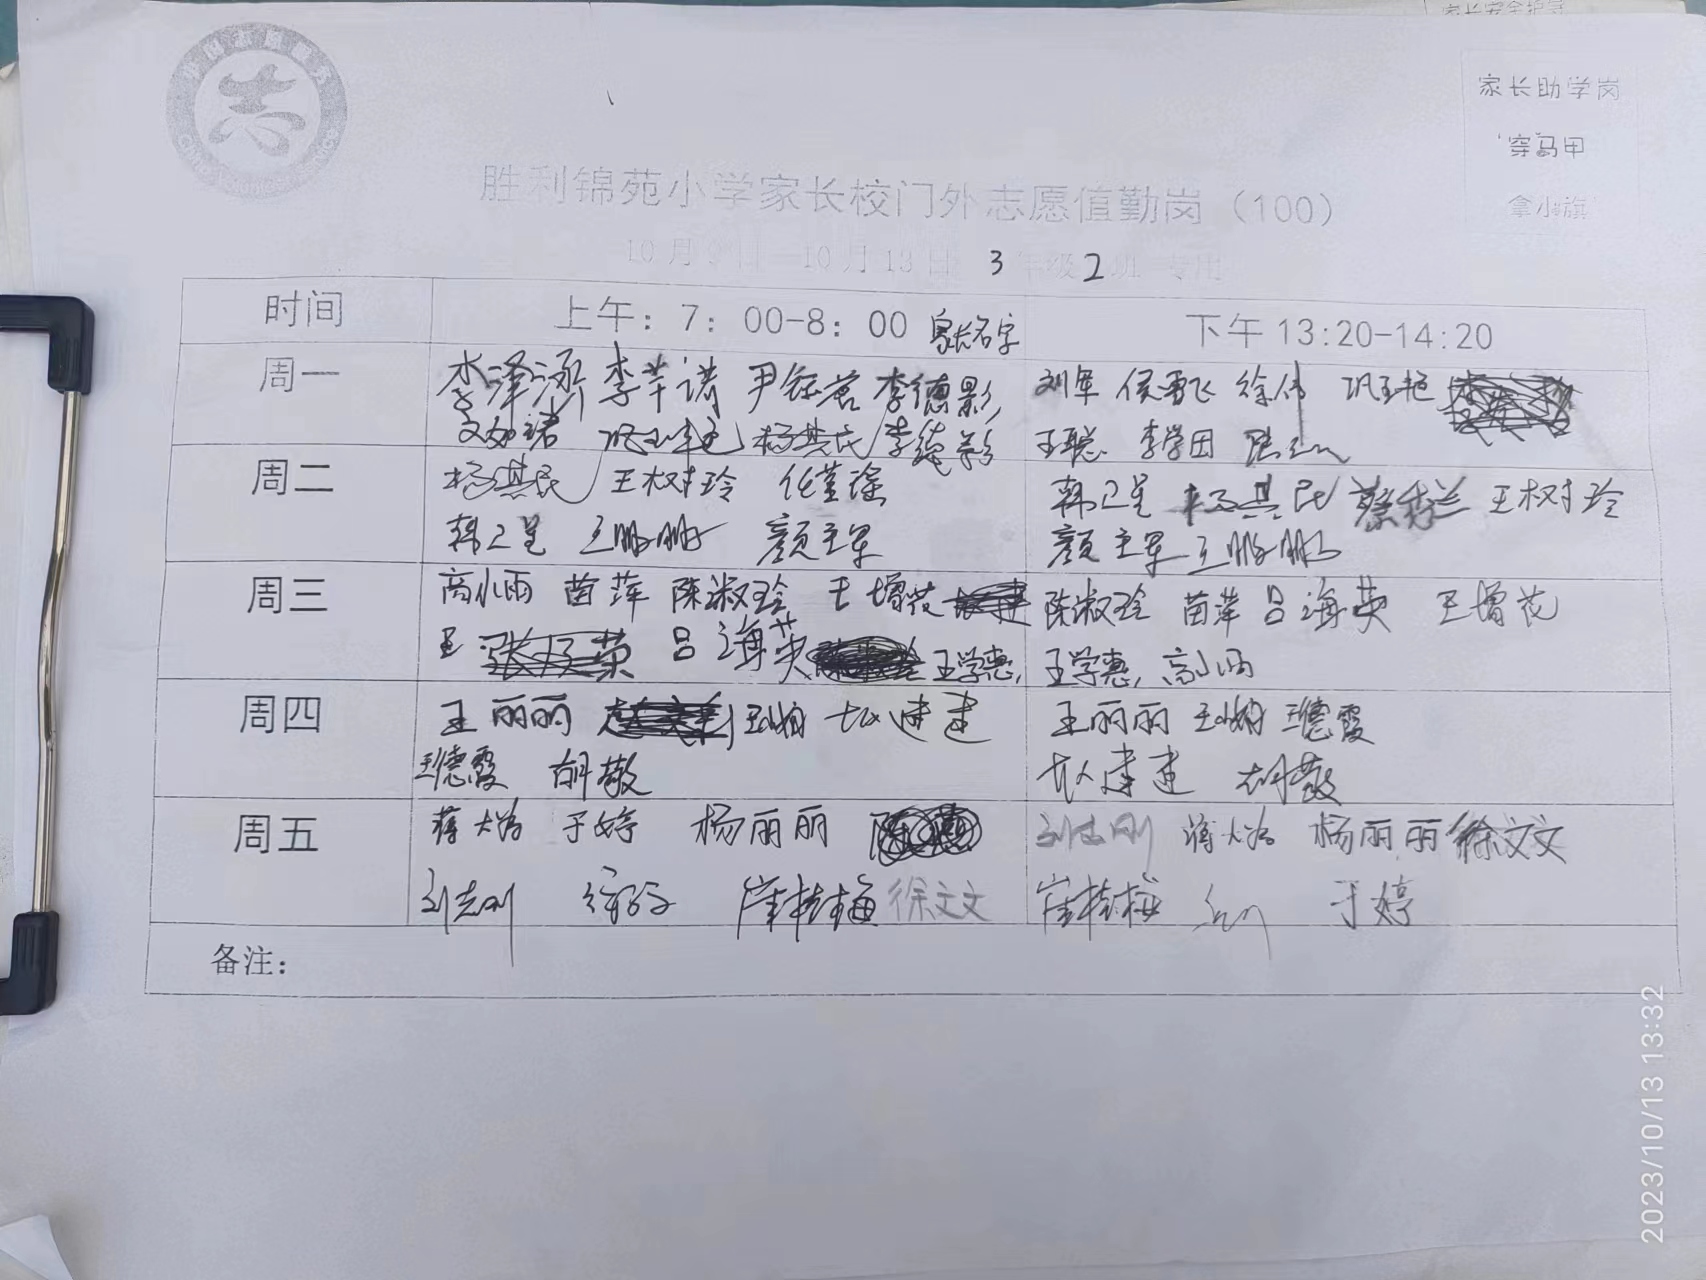 家长安全护导
家长助学岗
穿马甲
拿小旗
胜利锦苑小学家长校门外志愿值勤岗（100）
10月9日—10月13日 3年级2班 专用
时间 上午：7：00-8：00 家长名字 下午13:20-14:20
周一 李泽 李芊诺 尹钰茗 李德影 刘军 侯雪飞 徐伟 巩玉艳
杨其民 李德影 王聪 李学田
周二 杨淇民 王树玲 韩卫星 杨其民 蔡秀兰 王树玲
韩卫星 王鹏鹏 颜主军 颜主军 王鹏鹏
周三 高小雨 苗萍 陈淑玲 王增花 陈淑玲 苗萍 吕海英 王增花
王 吕海英 王学惠, 王学惠, 高小雨
周四 王丽丽 建建 王丽丽 王德霞
王德霞 胡敬 建建 胡敬
周五 蒋大为 于婷 杨丽丽 刘志刚 蒋大为 杨丽丽 徐文文
刘志刚 崔桂梅 徐文文 崔桂梅 于婷
备注：
2023/10/13 13:32